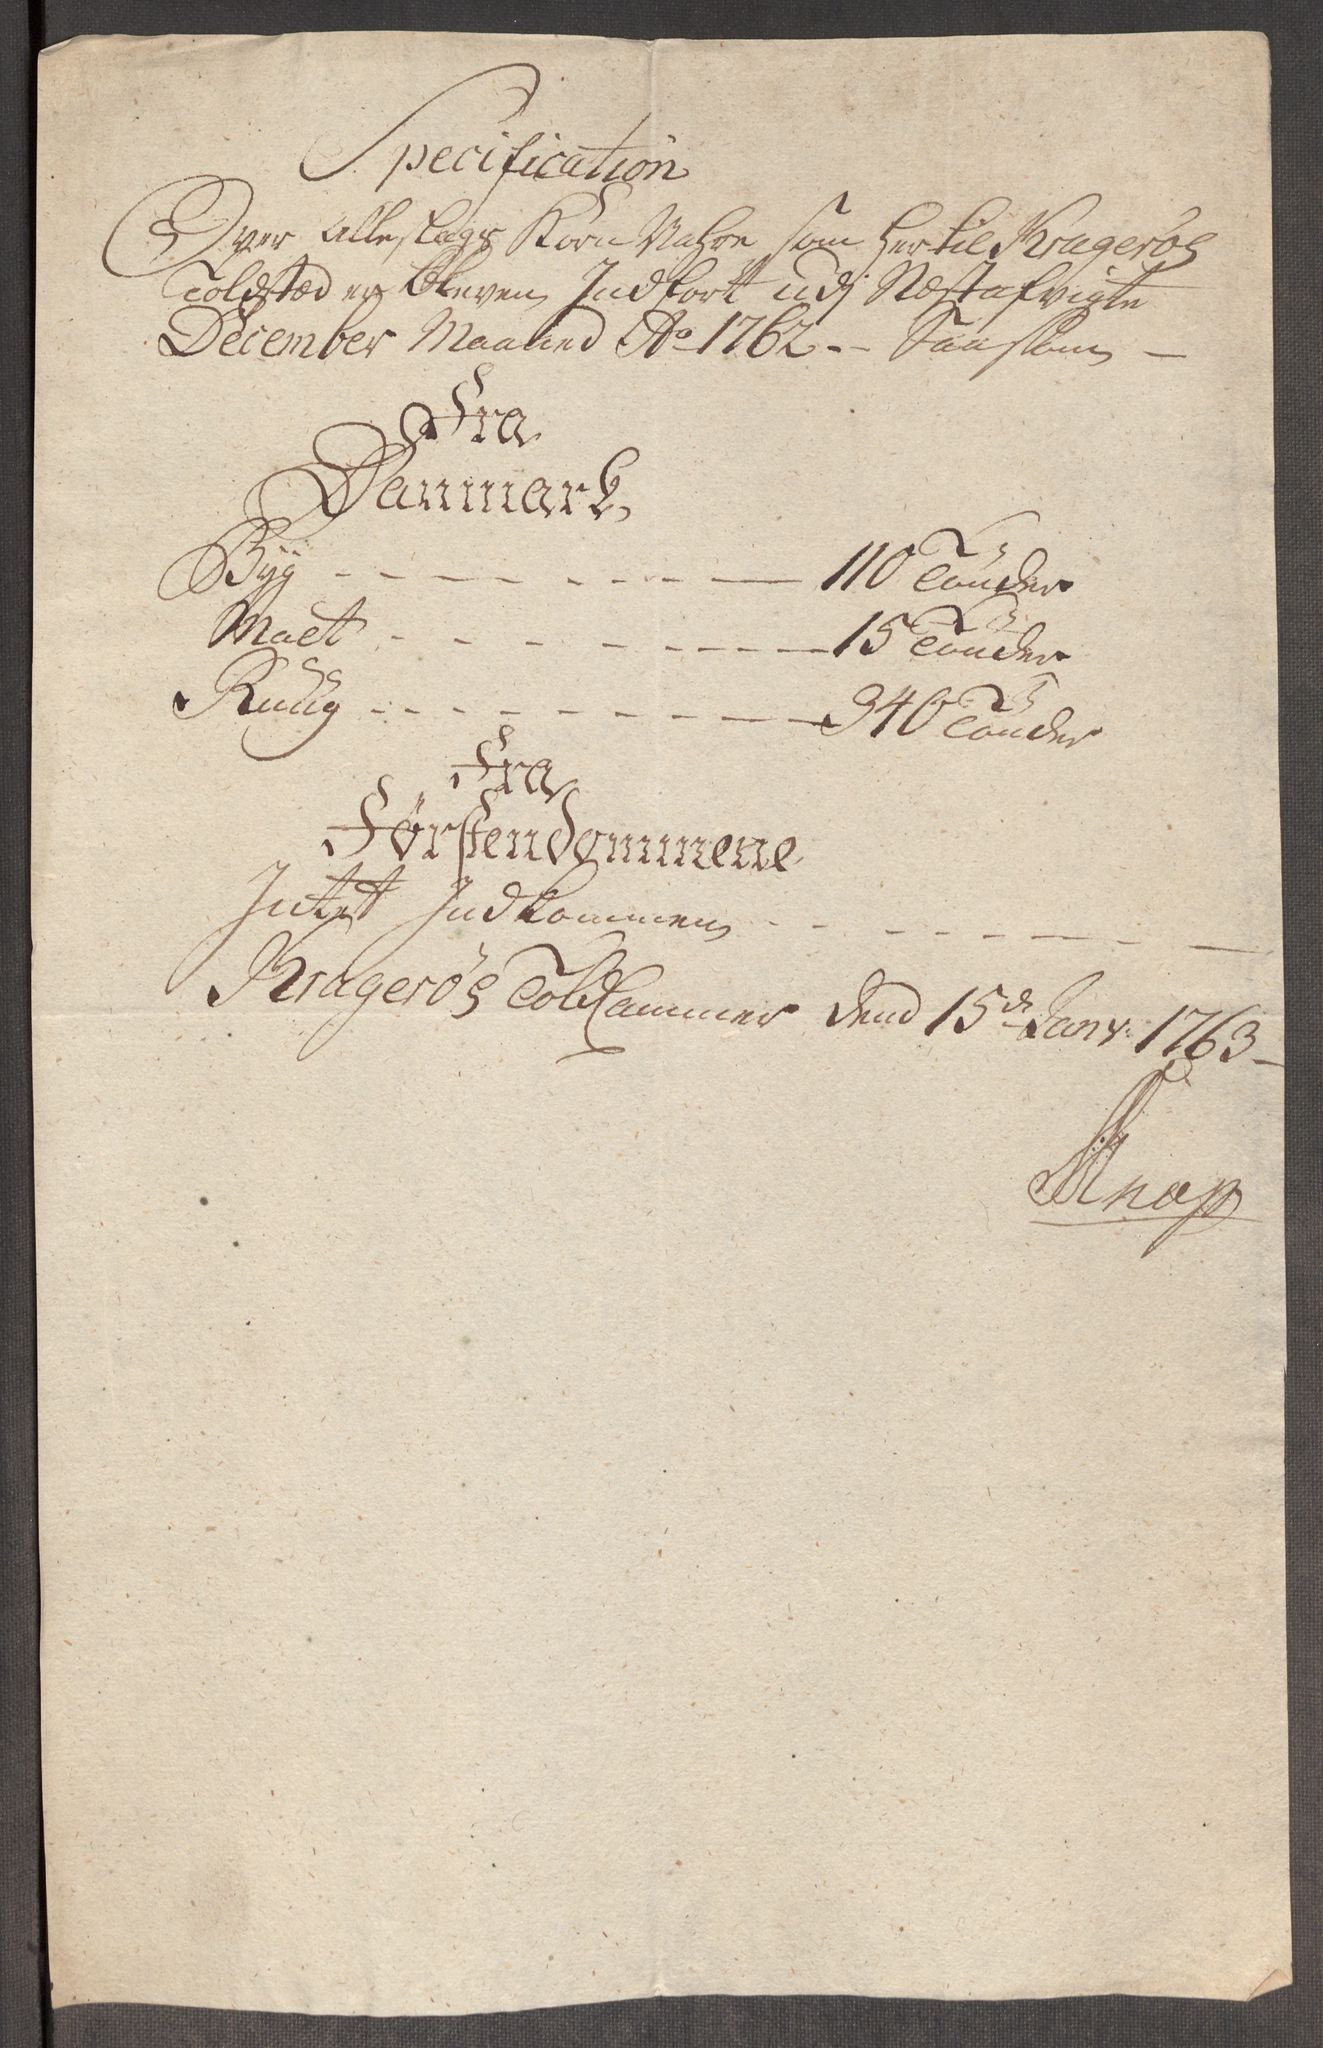 Specification
Over alle slags Korn Vahre som her til Kragerøes
Toldsted er bleven Indført udj Næstafvigte
December Maaned Ao 1762 -- Saasom
Fra
Danmark
Byg 110 Tønder
Malt 15 Tønder
Rug 340 Tønder
Fra
Førstendommene
Intet Indkommen
Kragerøes Told Cammer dend 15de Janv: 1763
Knap